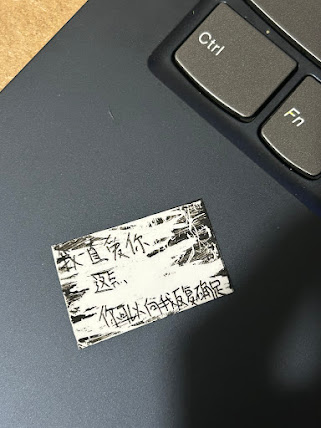 Ctrl
Fn
我一直爱你
这点
你可以向我反复确定